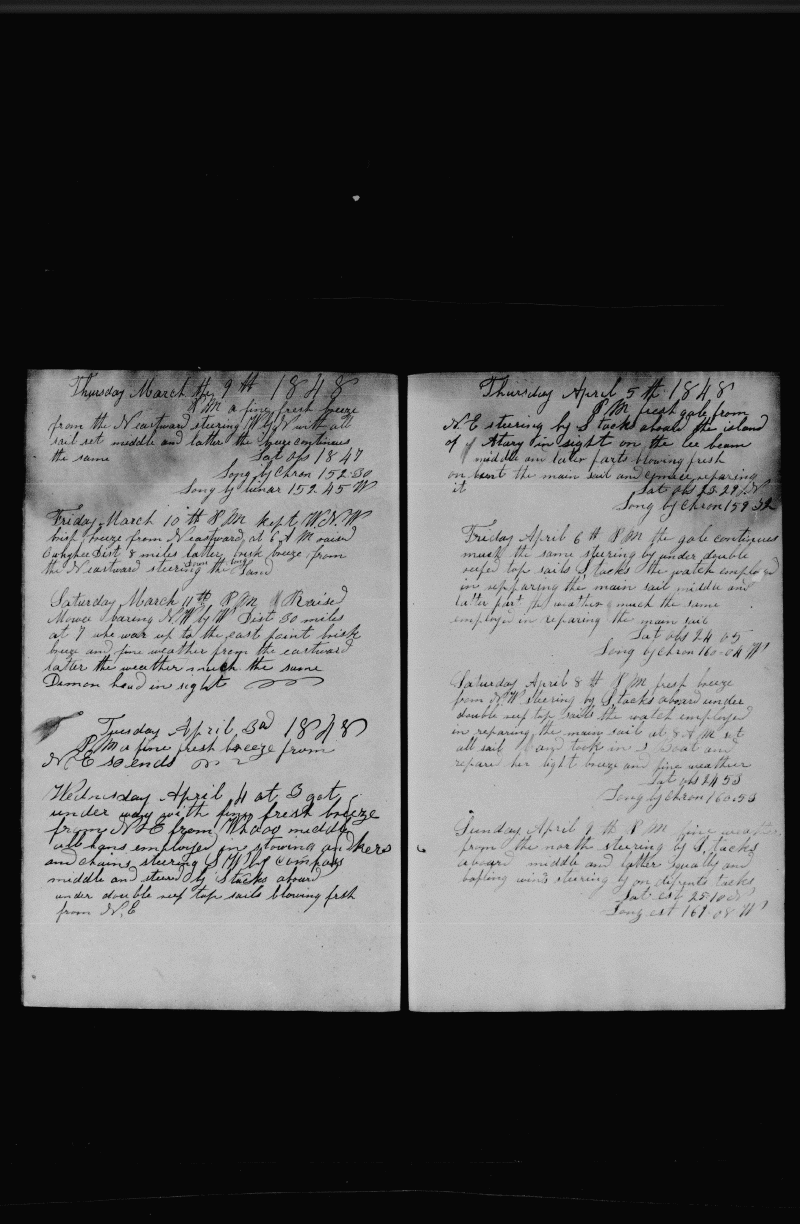 Thursday March 9th 1848
P M a fine fresh breeze
from the N eastward steering W by N with all
sail set middle and latter the breeze continues
the same Lat obs 18 47
Long by Chron 152-30
Long by lunar 152 45 W
Friday March 10th P M kept W.N.W
brisk breeze from N eastward at 6 A M raised
Dist 8 miles latter brisk breeze from
the N eastward steering the land
Saturday March 11th P M Raised
Mowee baring N.W by W Dist 30 miles
at 7 whe war up to the east point brisk
breeze and fine weather from the eastward
latter the weather much the same
Dimon head in sight
Tuesday April 3d 1848
P. M a fine fresh breeze from
N E so ends
Wednesday April 4 at 3 got
under way with fine fresh breeze
from N E from Whaoo middle
all hans employed in stowing ankers
and chains steering S W by compas
middle and steerd by S tacks aboard
under double reef top sails blowing frsh
from N.E
Thursday April 5th 1848
P. M fresh gale from
N. E steering by S tacks aboard the island
of Atary in sight on the lee beam
middle and later parts blowing fresh
on bent the main sail and repairing
it Lat obs 23-29 N
Long by Chron 159 32
Friday April 6th P M the gale continues
much the same steering by under double
reefed top sails S tacks the watch employed
in repparing the main sail middle and
latter part the weather much the same
employed in reparing the main sail
Lat obs 24 05
Long by Chron 160-04 W
Saturday April 8th P M fresh breeze
from N.W steering by S. tacks aboard under
double reef top sails the watch employed
in reparing the main sail at 8 A M set
all sail and took in S boat and
repare her light breeze and fine weather
Lat obs 24 53
Long by Chron 160-53
Sunday April 9th P M fine weather
from the north steering by S, tacks
aboard middle and latter squally and
bafling winds steering by on difrents tacks
Lat est 25-10
Long est 161-08 W